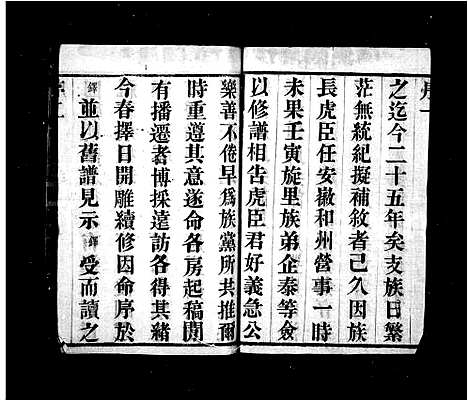 序一
之迄今二十五年矣支族日繁
茫無統紀擬補敘者已久因族
長虎臣任安徽和州營事一時
未果壬寅旋里族弟企泰等僉
以修譜相告虎臣君好義急公
樂善不倦早爲族黨所共推爾
時重遵其意遂命各房起稿間
有播遷者博採遠訪各得其緒
今春擇日開雕續修因命序於
鐸並以舊譜見示鐸受而讀之
序二